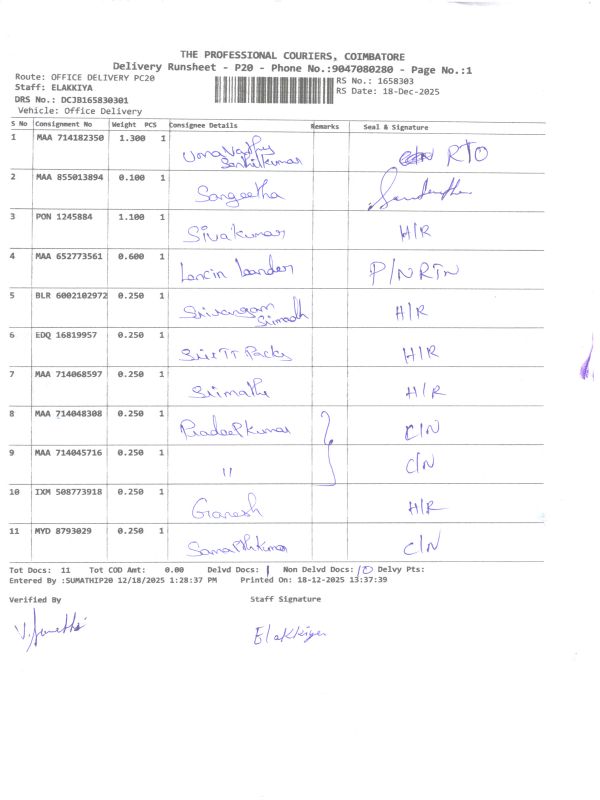 THE PROFESSIONAL COURIERS, COIMBATORE
Delivery Runsheet - P20 - Phone No.:9047080280 - Page No.:1
Route: OFFICE DELIVERY PC20
RS No.: 1658303
Staff: ELAKKIYA
RS Date: 18-Dec-2025
DRS No.: DCJB165830301
Vehicle: Office Delivery
S No Consignment No Weight PCS Consignee Details Remarks Seal & Signature
1 MAA 714182350 1.300 1 Umavathy Senthilkumar RTO
2 MAA 855013894 0.100 1 Sangeetha
3 PON 1245884 1.100 1 Sivakumar H/R
4 MAA 652773561 0.600 1 P/NRTN
5 BLR 6002102972 0.250 1 H/R
6 EDQ 16819957 0.250 1 H/R
7 MAA 714068597 0.250 1 Srimathi H/R
8 MAA 714048308 0.250 1 Pradeepkumar C/N
9 MAA 714045716 0.250 1 " C/N
10 IXM 508773918 0.250 1 Ganesh H/R
11 MYD 8793029 0.250 1 C/N
Tot Docs: 11 Tot COD Amt: 0.00 Delvd Docs: 1 Non Delvd Docs: 10 Delvy Pts:
Entered By :SUMATHIP20 12/18/2025 1:28:37 PM Printed On: 18-12-2025 13:37:39
Verified By Staff Signature
V. Sumathi Elakkiya